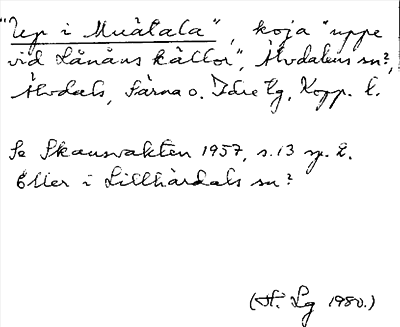 "Up i Muåtala", koja "uppe
vid Lånåns källor", Älvdalens sn?,
Älvdals, Särna o. Idre tg, Kopp. l.
Se Skansvakten 1957, s. 13 sp. 2.
Eller i Lillhärdals sn?
(H. Lg 1980.)